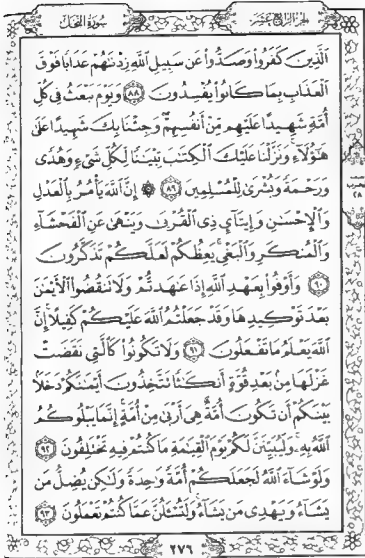 سورة النحل
الجزء الرابع عشر
الَّذِينَ كَفَرُوا۟ وَصَدُّوا۟ عَن سَبِيلِ ٱللَّهِ زِدْنَٰهُمْ عَذَابًا فَوْقَ
ٱلْعَذَابِ بِمَا كَانُوا۟ يُفْسِدُونَ ٨٨ وَيَوْمَ نَبْعَثُ فِى كُلِّ
أُمَّةٍ شَهِيدًا عَلَيْهِم مِّنْ أَنفُسِهِمْ وَجِئْنَا بِكَ شَهِيدًا عَلَىٰ
هَٰٓؤُلَآءِ وَنَزَّلْنَا عَلَيْكَ ٱلْكِتَٰبَ تِبْيَٰنًا لِّكُلِّ شَىْءٍ وَهُدًى
وَرَحْمَةً وَبُشْرَىٰ لِلْمُسْلِمِينَ ٨٩ ۞ إِنَّ ٱللَّهَ يَأْمُرُ بِٱلْعَدْلِ
وَٱلْإِحْسَٰنِ وَإِيتَآئِ ذِى ٱلْقُرْبَىٰ وَيَنْهَىٰ عَنِ ٱلْفَحْشَآءِ
وَٱلْمُنكَرِ وَٱلْبَغْىِ يَعِظُكُمْ لَعَلَّكُمْ تَذَكَّرُونَ
٩٠ وَأَوْفُوا۟ بِعَهْدِ ٱللَّهِ إِذَا عَٰهَدتُّمْ وَلَا تَنقُضُوا۟ ٱلْأَيْمَٰنَ
بَعْدَ تَوْكِيدِهَا وَقَدْ جَعَلْتُمُ ٱللَّهَ عَلَيْكُمْ كَفِيلًا إِنَّ
ٱللَّهَ يَعْلَمُ مَا تَفْعَلُونَ ٩١ وَلَا تَكُونُوا۟ كَٱلَّتِى نَقَضَتْ
غَزْلَهَا مِنۢ بَعْدِ قُوَّةٍ أَنكَٰثًا تَتَّخِذُونَ أَيْمَٰنَكُمْ دَخَلًۢا
بَيْنَكُمْ أَن تَكُونَ أُمَّةٌ هِىَ أَرْبَىٰ مِنْ أُمَّةٍ إِنَّمَا يَبْلُوكُمُ
ٱللَّهُ بِهِۦ وَلَيُبَيِّنَنَّ لَكُمْ يَوْمَ ٱلْقِيَٰمَةِ مَا كُنتُمْ فِيهِ تَخْتَلِفُونَ ٩٢
وَلَوْ شَآءَ ٱللَّهُ لَجَعَلَكُمْ أُمَّةً وَٰحِدَةً وَلَٰكِن يُضِلُّ مَن
يَشَآءُ وَيَهْدِى مَن يَشَآءُ وَلَتُسْـَٔلُنَّ عَمَّا كُنتُمْ تَعْمَلُونَ ٩٣
٢٧٦